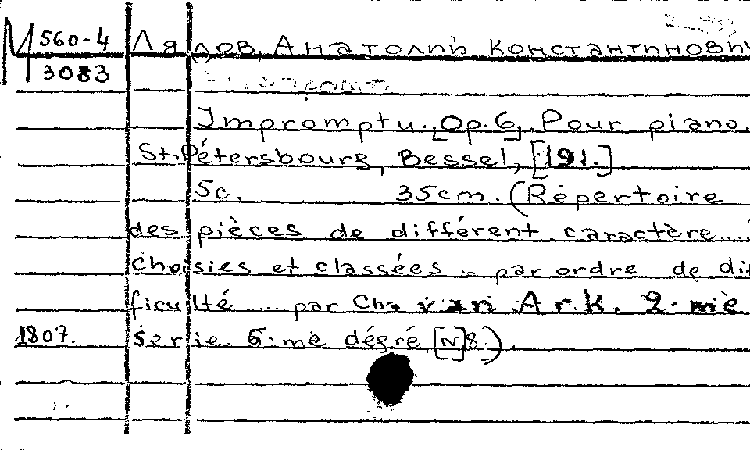 М 560-4 Лядов, Анатолий Константинович
3083
Impromptu. [Op.6]. Pour piano
St. Pétersbourg, Bessel, [191.]
5c. 35cm. (Répertoire
des pièces de différent caractère...
choisies et classées .. par ordre de dif
ficulté .. par Ch. van Ark. 2-mè
1807. serie 5-mè dégré [N]8.).